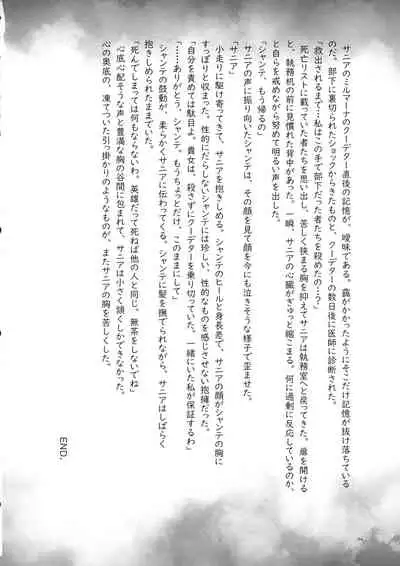 サニアのミルマーナのクーデター直後の記憶が、曖昧である。靄がかかったようにそこだけ記憶が抜け落ちている
のだ。部下に裏切られたショックからきたものと、クーデターの数日後に医師に診断された。
「救出されるまで…私はこの手で部下だった者たちを殺めたの…？」
死亡リストに載っていた者たちを思い出し、苦しく狭まる胸を抑えてサニアは執務室へと戻ってきた。扉を開ける
と、執務机の前に見慣れた背中があった。一瞬、サニアの心臓がぎゅっと縮こまる。何に過剰に反応しているのか、
と自らを戒めながら努めて明るい声を出した。
「シャンテ、もう帰るの」
サニアの声に振り向いたシャンテは、その顔を見て顔を今にも泣きそうな様子で歪ませた。
「サニア」
小走りに駆け寄ってきて、サニアを抱きしめる。シャンテのヒールと身長差で、サニアの顔がシャンテの胸に
すっぽりと収まった。性的にだらしないシャンテには珍しい、性的なものを感じさせない抱擁だった。
「自分を責めては駄目よ。貴女は、殺さずにクーデターを乗り切っていた。一緒にいた私が保証するわ」
「……ありがとう、シャンテ。もうちょっとだけ、このままにして」
シャンテの鼓動が、柔らかくサニアに伝わってくる。シャンテに髪を撫でられながら、サニアはしばらく
抱きしめられたままでいた。
「死んでしまっては何もならないわ。英雄だって死ねば他の人と同じ。無茶をしないでね」
心底心配そうな声と豊満な胸の谷間に包まれて、サニアは小さく頷くしかできなかった。
心の奥底の、凍てついた引っ掛かりのようなものが、またサニアの胸を苦しくした。
END.